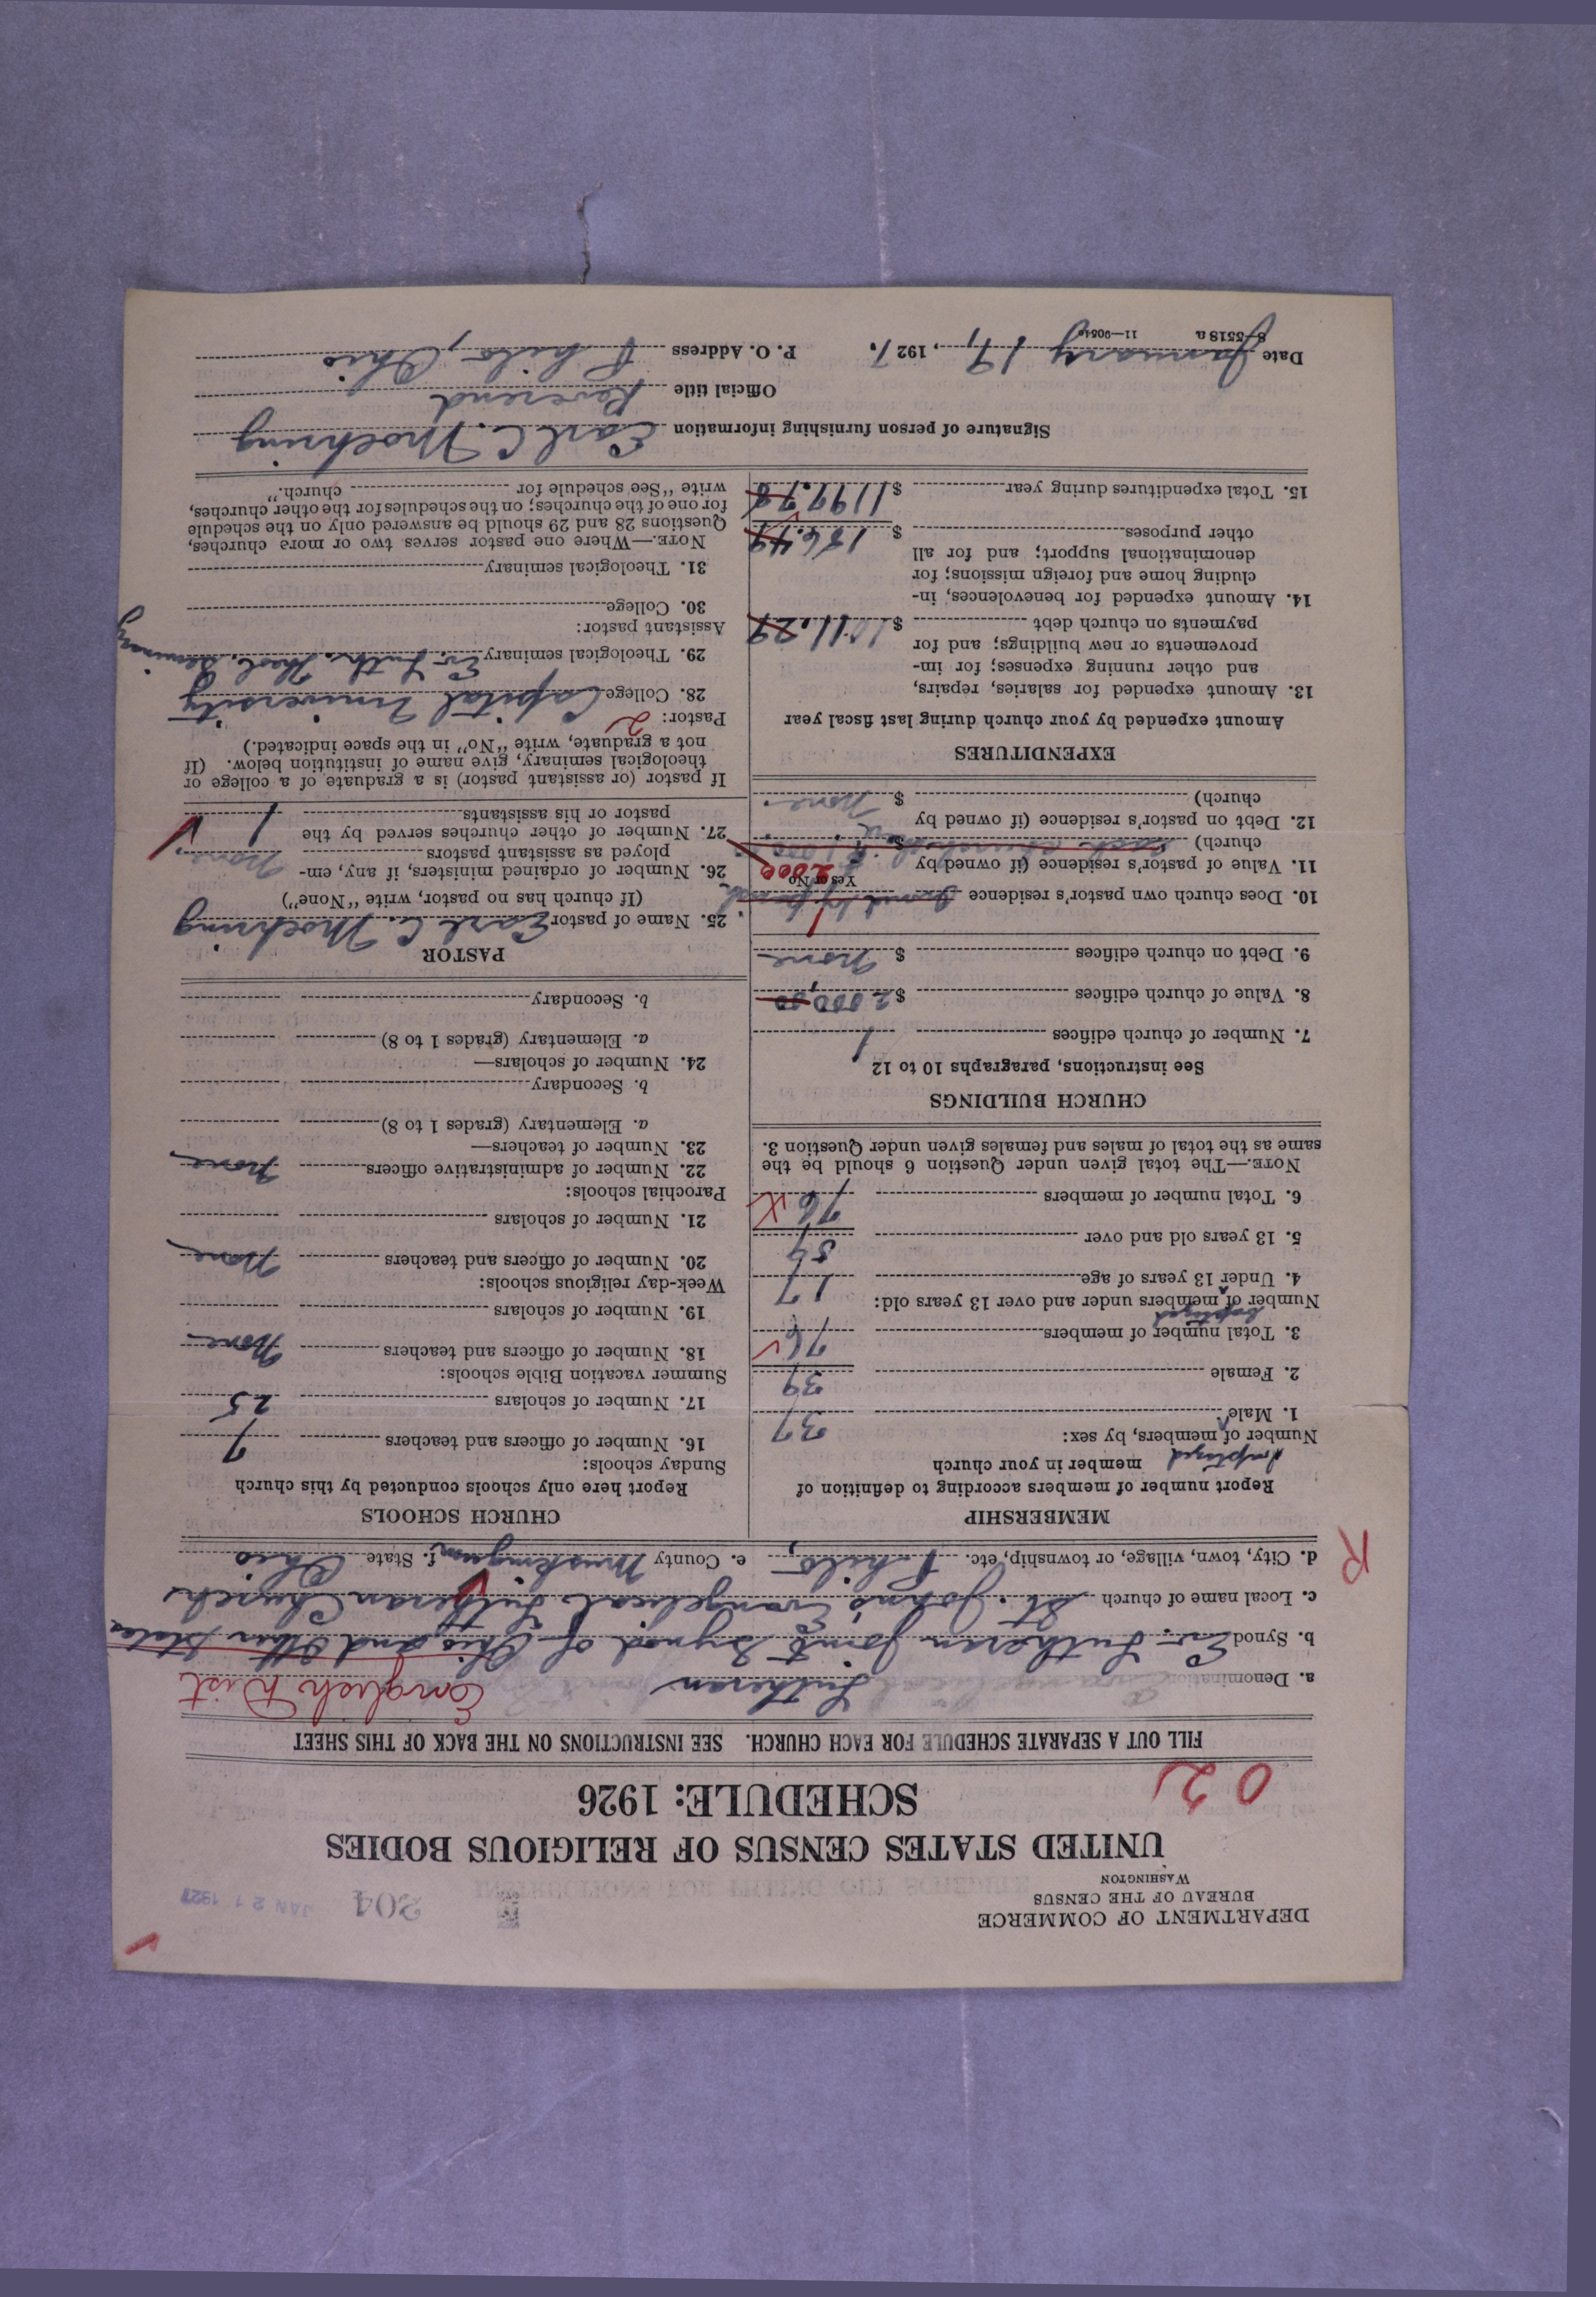 DEPARTMENT OF COMMERCE
BUREAU OF THE CENSUS
WASHINGTON
204
JAN 21 1927
UNITED STATES CENSUS OF RELIGIOUS BODIES
SCHEDULE: 1926
02
FILL OUT A SEPARATE SCHEDULE FOR EACH CHURCH. SEE INSTRUCTIONS ON THE BACK OF THIS SHEET
a. Denomination Lutheran English Dist
b. Synod Ev. Lutheran Joint Synod of Ohio and Other States
c. Local name of church St. John's Evangelical Lutheran Church
d. City, town, village, or township, etc. Philo, e. County Muskingum f. State Ohio
R
MEMBERSHIP
Report number of members according to definition of
member in your church
baptized
Number of members, by sex:
1. Male 37
2. Female 39
3. Total number of members 76
baptized
Number of members under and over 13 years old:
4. Under 13 years of age 17
5. 13 years old and over 59
6. Total number of members 76
NOTE.—The total given under Question 6 should be the
same as the total of males and females given under Question 3.
CHURCH BUILDINGS
See instructions, paragraphs 10 to 12
7. Number of church edifices 1
8. Value of church edifices $ 2000.00
9. Debt on church edifices $ None
10. Does church own pastor's residence
Yes or No
11. Value of pastor's residence (if owned by 2000
church) $
12. Debt on pastor's residence (if owned by
church) $ None.
EXPENDITURES
Amount expended by your church during last fiscal year
13. Amount expended for salaries, repairs,
and other running expenses; for im-
provements or new buildings; and for
payments on church debt $ 1011.29
14. Amount expended for benevolences, in-
cluding home and foreign missions; for
denominational support; and for all
other purposes $ 186.49
15. Total expenditures during year $ 1197.78
CHURCH SCHOOLS
Report here only schools conducted by this church
Sunday schools:
16. Number of officers and teachers 7
17. Number of scholars 25
Summer vacation Bible schools:
18. Number of officers and teachers None
19. Number of scholars
Week-day religious schools:
20. Number of officers and teachers None
21. Number of scholars
Parochial schools:
22. Number of administrative officers None
23. Number of teachers—
a. Elementary (grades 1 to 8)
b. Secondary
24. Number of scholars—
a. Elementary (grades 1 to 8)
b. Secondary
PASTOR
25. Name of pastor Earl C. Moehring
(If church has no pastor, write "None")
26. Number of ordained ministers, if any, em-
ployed as assistant pastors None.
27. Number of other churches served by the
pastor or his assistants 1
If pastor (or assistant pastor) is a graduate of a college or
theological seminary, give name of institution below. (If
not a graduate, write "No" in the space indicated.)
Pastor: 2
28. College Capital University
29. Theological seminary Ev. Luth. Theol. Seminary
Assistant pastor:
30. College
31. Theological seminary
NOTE.—Where one pastor serves two or more churches,
Questions 28 and 29 should be answered only on the schedule
for one of the churches; on the schedules for the other churches,
write "See schedule for church."
Signature of person furnishing information Earl C. Moehring
Official title Reverend
Date January 17, 1927. P. O. Address Philo, Ohio
8-5518 a 11—9051